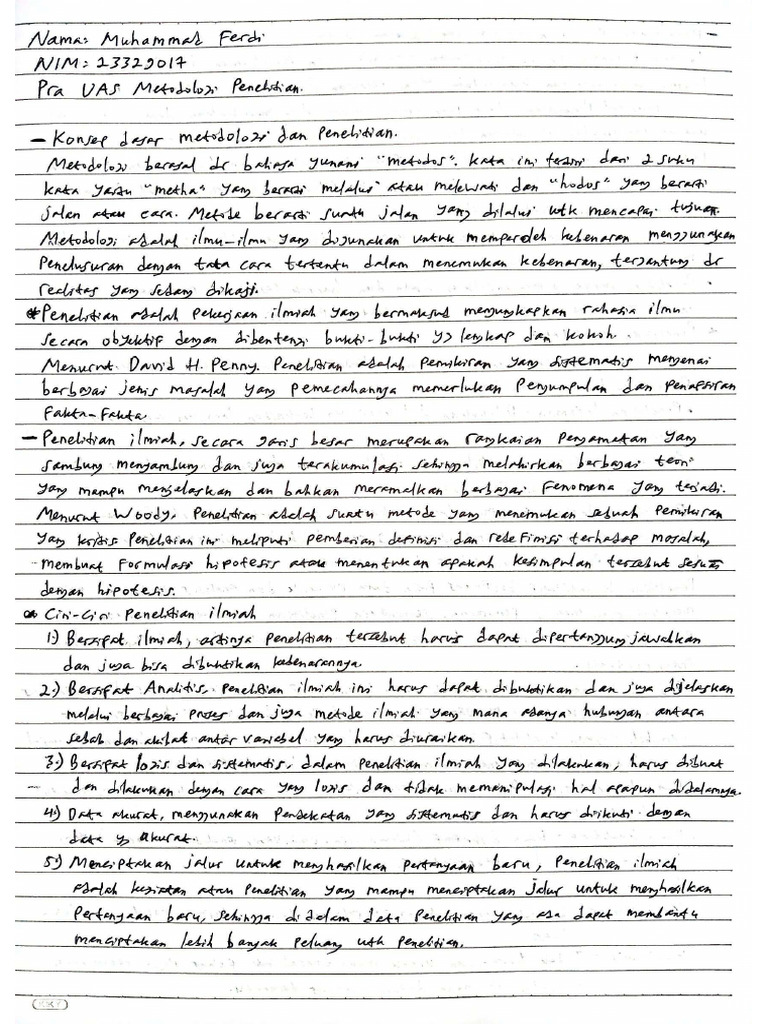 Nama: Muhammad Ferdi
NIM: 23329017
Pra UAS Metodologi Penelitian.
- Konsep dasar metodologi dan Penelitian.
Metodologi berasal dr bahasa yunani "metodos". kata ini terdiri dari 2 suku
kata yaitu "metha" yang berarti melalui atau melewati dan "hodos" yang berarti
jalan atau cara. Metode berarti suatu jalan yang dilalui utk mencapai tujuan.
Metodologi adalah ilmu-ilmu yang digunakan untuk memperoleh kebenaran menggunakan
Penelusuran dengan tata cara tertentu dalam menemukan kebenaran, tergantung dr
realitas yang sedang dikaji.
* Penelitian adalah Pekerjaan ilmiah yang bermaksud mengungkapkan rahasia ilmu
secara objektif dengan dibentengi bukti-bukti yg lengkap dan kokoh.
Menurut David H. Penny. Penelitian adalah Pemikiran yang sistematis mengenai
berbagai jenis masalah yang pemecahannya memerlukan Pengumpulan dan penafsiran
Fakta-Fakta
- Penelitian ilmiah, secara garis besar merupakan rangkaian Pengamatan yang
sambung menyambung dan juga terakumulasi sehingga melahirkan berbagai teori
yang mampu menjelaskan dan bahkan meramalkan berbagai Fenomena yang terjadi.
Menurut Woody, Penelitian adalah suatu metode yang menemukan sebuah Pemikiran
yang kritis Penelitian ini meliputi pemberian definisi dan redefinisi terhadap masalah,
membuat formulasi hipofesis atau menentukan apakah kesimpulan tersebut sesuai
dengan hipotesis.
Ciri-Ciri Penelitian ilmiah
1.) Bersifat ilmiah, artinya penelitian tersebut harus dapat dipertanggung jawabkan
dan juga bisa dibuktikan kebenarannya.
2.) Bersifat Analitis. Penelitian ilmiah ini harus dapat dibuktikan dan juga dijelaskan
melalui berbagai proses dan juga metode ilmiah yang mana adanya hubungan antara
sebab dan akibat antar variabel yang harus diuraikan.
3.) Bersifat logis dan sistematis, dalam Penelitian ilmiah yang dilakukan, harus dibuat
dan dilakukan dengan cara yang logis dan tidak memanipulasi hal apapun didalamnya.
4.) Data akurat, menggunakan Pendekatan yang sistematis dan harus diikuti dengan
data yg akurat.
5.) Menciptakan jalur untuk menghasilkan pertanyaan baru, Penelitian ilmiah
adalah kegiatan atau Penelitian yang mampu menciptakan jalur untuk menghasilkan
Pertanyaan baru, sehingga didalam data Penelitian yang ada dapat membantu
menciptakan lebih banyak peluang utk Penelitian.
KKY